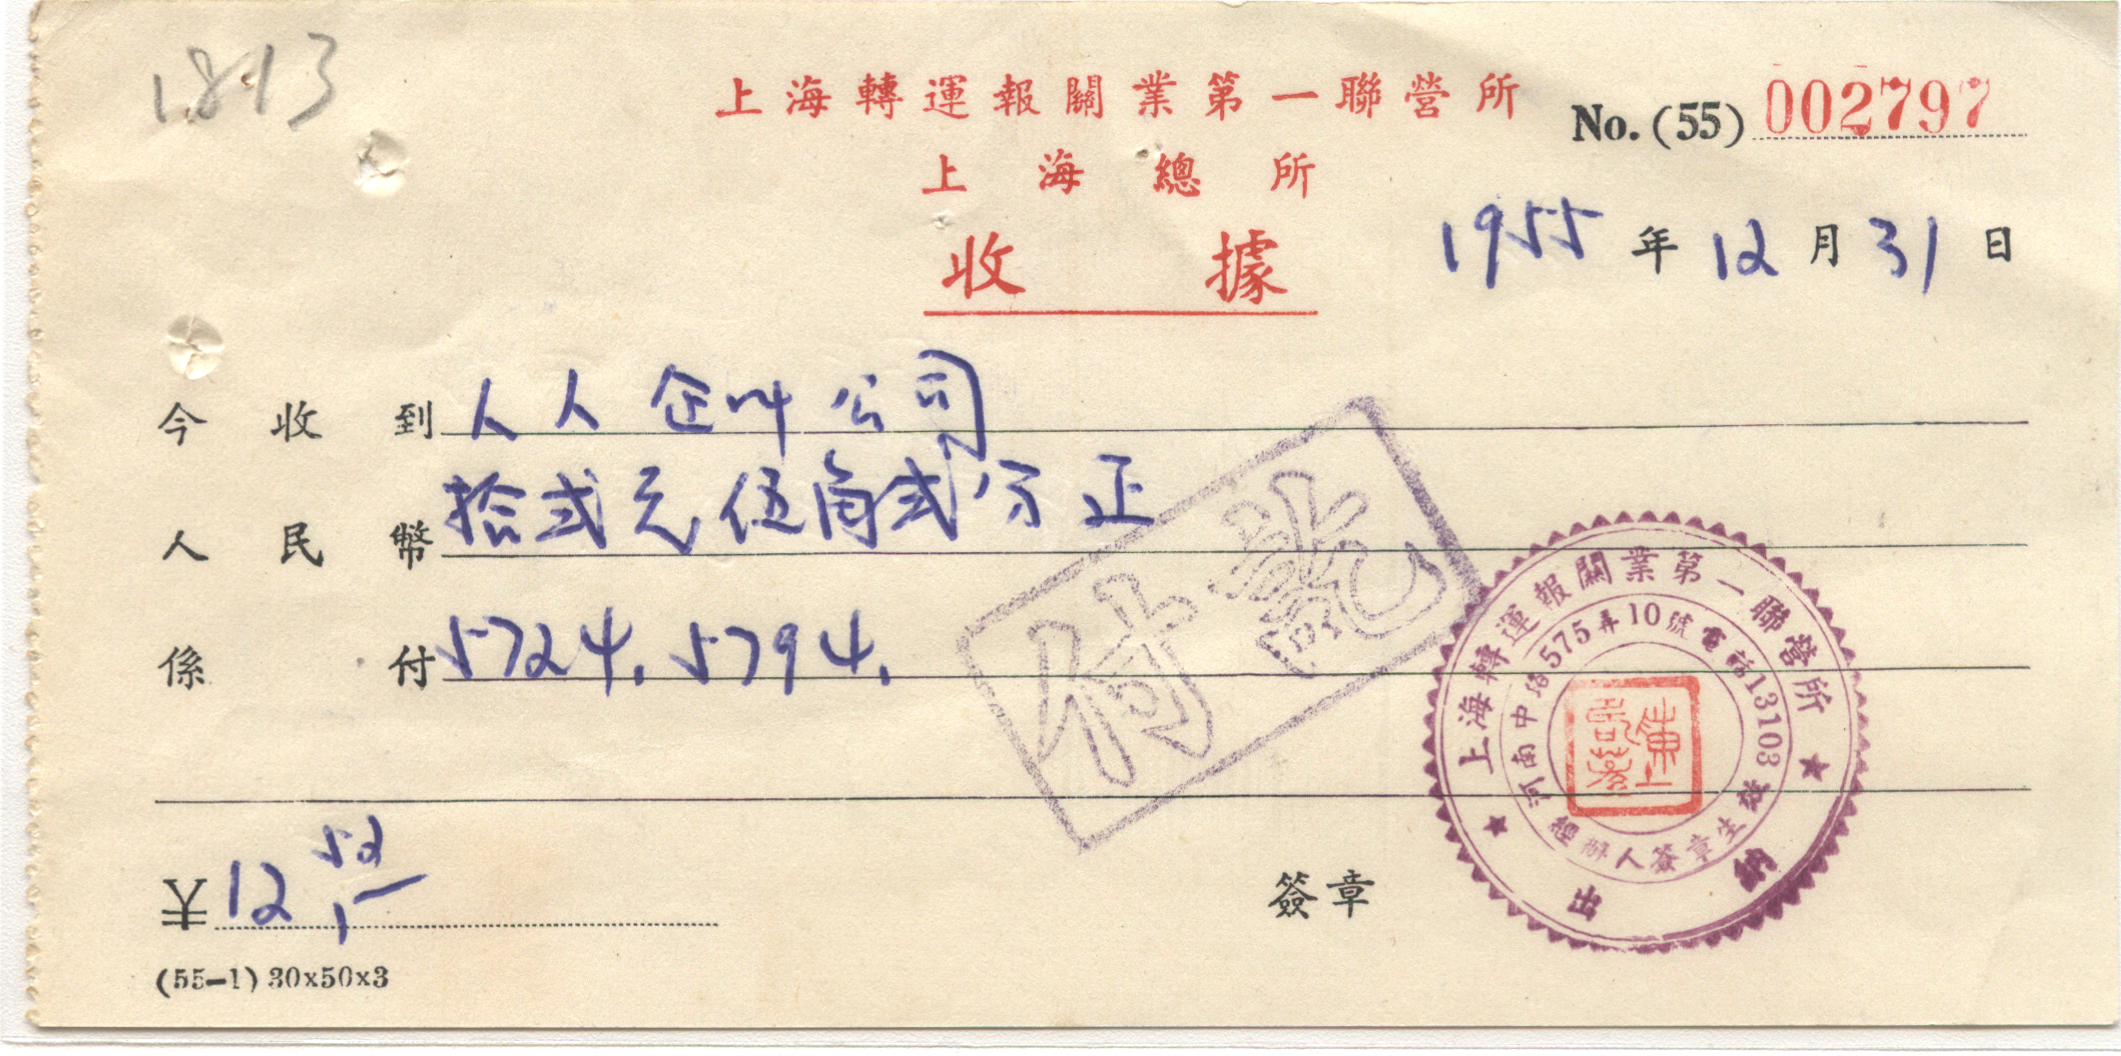 1813
上海轉運報關業第一聯營所
No. (55) 002797
上海總所
收據
1955年12月31日
今收到 人人企业公司
人民幣 拾弍元伍角弍分正
係付 5724. 5794.
付訖
¥12 52
簽章
上海轉運報關業第一聯營所
河南中路575弄10號電話13103
人簽章生效
出納
(55-1) 30x50x3